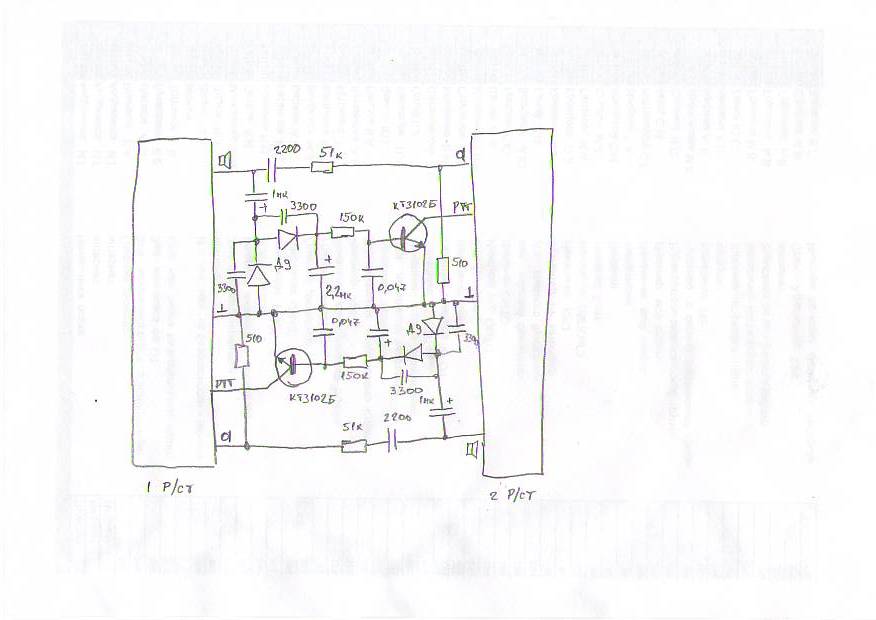 2200
51к
1мк
+
3300
150к
КТ3102Б
PTT
Д9
+
510
3300
2,2мк
0,047
510
0,047
+
Д9
3300
150к
3300
КТ3102Б
PTT
1мк
+
51к
2200
1 Р/СТ
2 Р/СТ